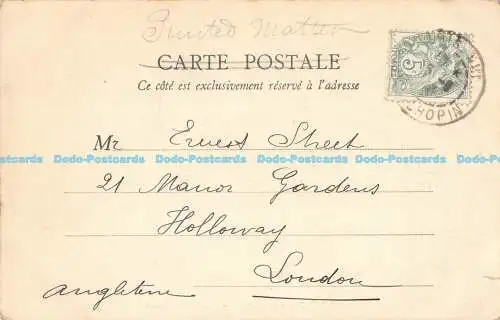 Printed Matter
CARTE POSTALE
Ce côté est exclusivement réservé à l'adresse
5
CHOPIN
Mr Ernest Street
Dodo-Postcards Dodo-Postcards Dodo-Postcards Dodo-Postcards Dodo-Postcards
21 Manor Gardens
Holloway
London
Angleterre